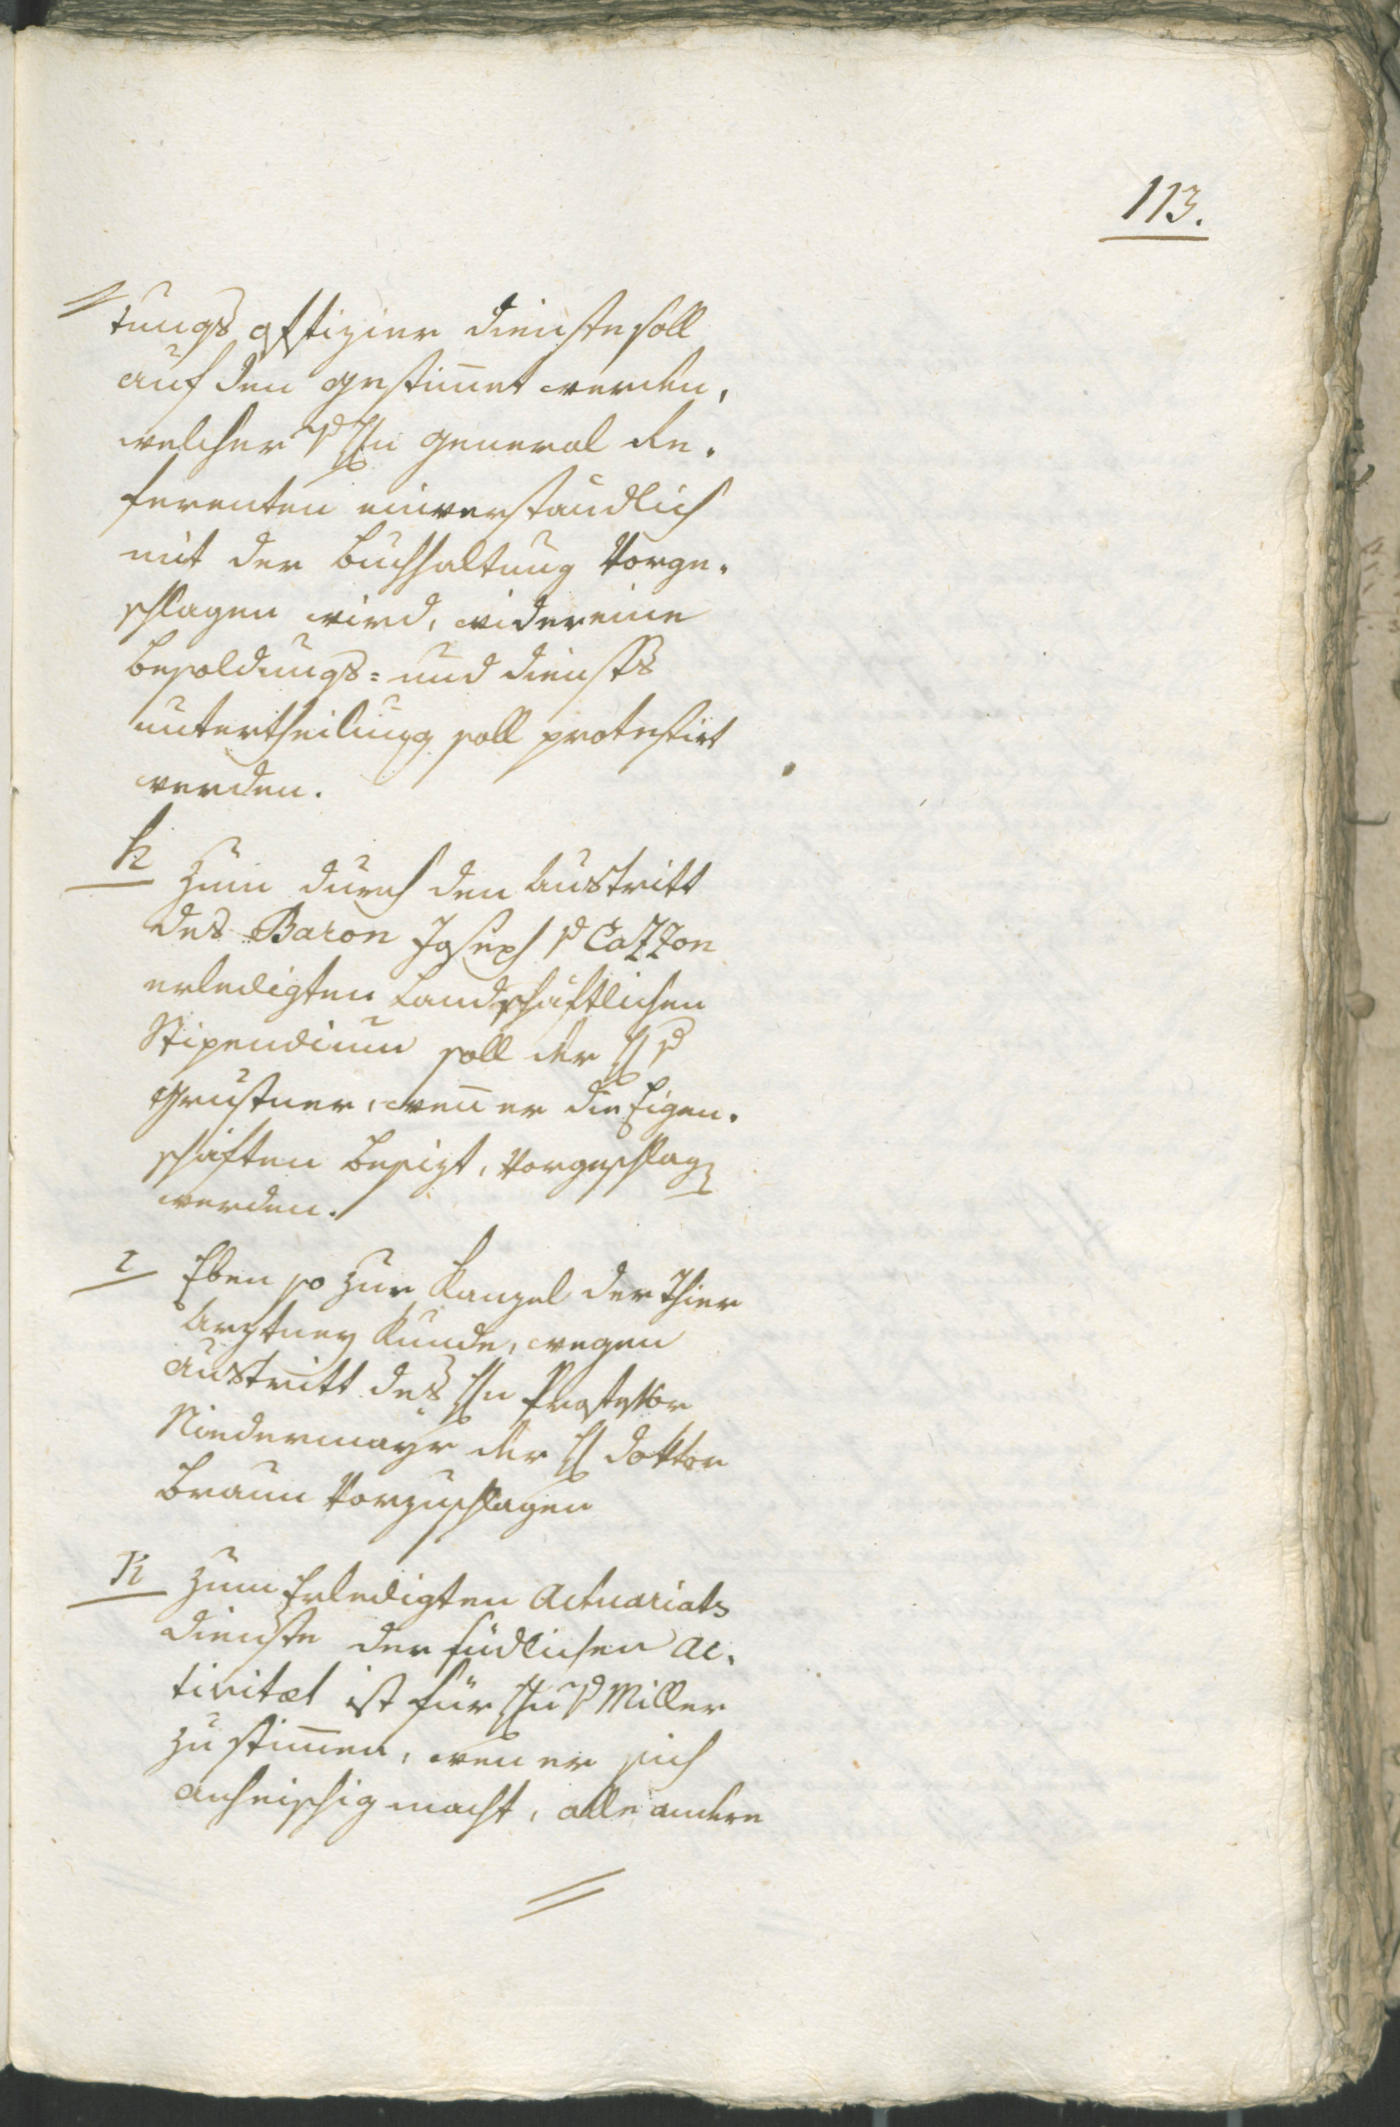 113.
tungs offizier dienste soll
auf den gestim̄et werden,
welcher v H̄n general Re¬
ferenten einverstaͤndlich
mit der buchhaltung vorge¬
schlagen wird, wider eine
besoldungs= und diensts
untertheilung soll protestirt
werden.
h Zum durch den Austritt
des Baron Joseph v Cazzon
erledigten Landschäftlichen
Stipendium soll der H v
Grustner, wen̄ er die Eigen¬
schaften besizt, vorgeschlag
werden.
i Eben so zur Kanzel der Thier
Arztney Kunde, wegen
austritt des H̄n Professor
Niedermayr der H doktor
Braun vorzuschlagen
K Zum Erledigten Actuariats
dienste der südlichen Ac¬
tivitæt ist für H̄n v Miller
zu stim̄en, wen er sich
anheischig macht, alle andere